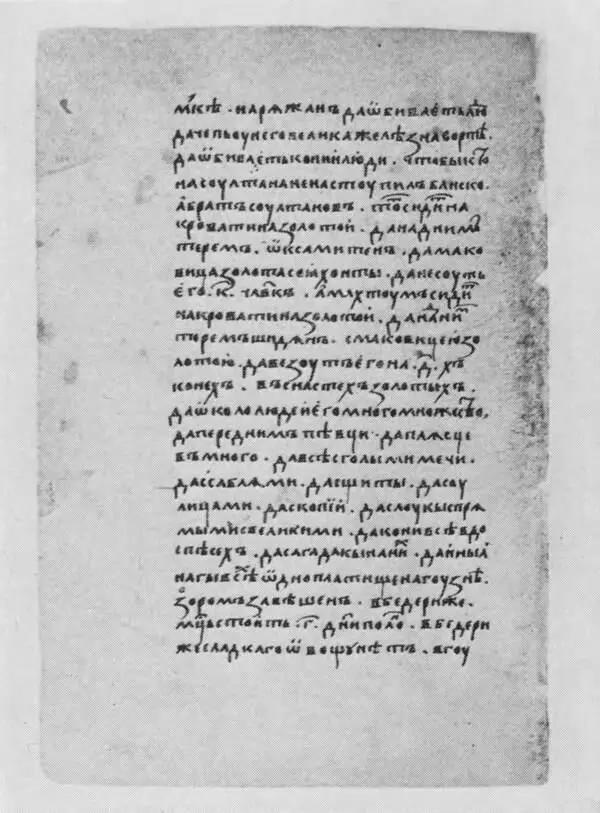 мкѣ · нарѧжанъ даѿбиваетьлю
дачепьоунеговеликажелѣзнавортѣ ·
даѿбиваетькониилюди · чтобыкто
насоултананенастоупилъблиско ·
абратъсоултановъ · тотсидитна
кроватиназолотои · данаднимъ
теремъ · ѡксамитенъ · дамако
вицазолотасꙗхонты · данесоуть
его · к҃ · чл҃вкъ · амахтоумъсидит
накроватиназолотои · данадним
теремъшидѧнъ · смаковицеюзо
лотою · давезоутьегона · д҃ · хъ
конехъ · въснастехъзолотыхъ ·
даѡкололюдеиегомногомножство,
дапереднимъпѣвци · даплѧсце
въмного · давсѣсголымимечи ·
дассаблѧми · дасщиты · дасоу
лицами · даскопїи · даслоукыспрѧ
мымисвеликими · даконивсѣвдо
спѣсехъ · дасагадакынаних · даиныа
нагывсѣ ѡдноплатищенагоузнѣ ·
зоромъзавѣшенъ · вбедериже ·
мц҃ьстоить · г҃ · дн҃иполно · вбедери
жесладкагоѡвощунѣтъ · вгоу